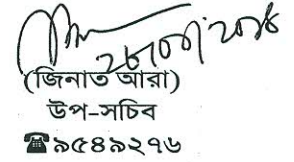 ২৮/০১/২০১৪
(জিনাত আরা)
উপ-সচিব
☎৯৫৪৯২৭৬